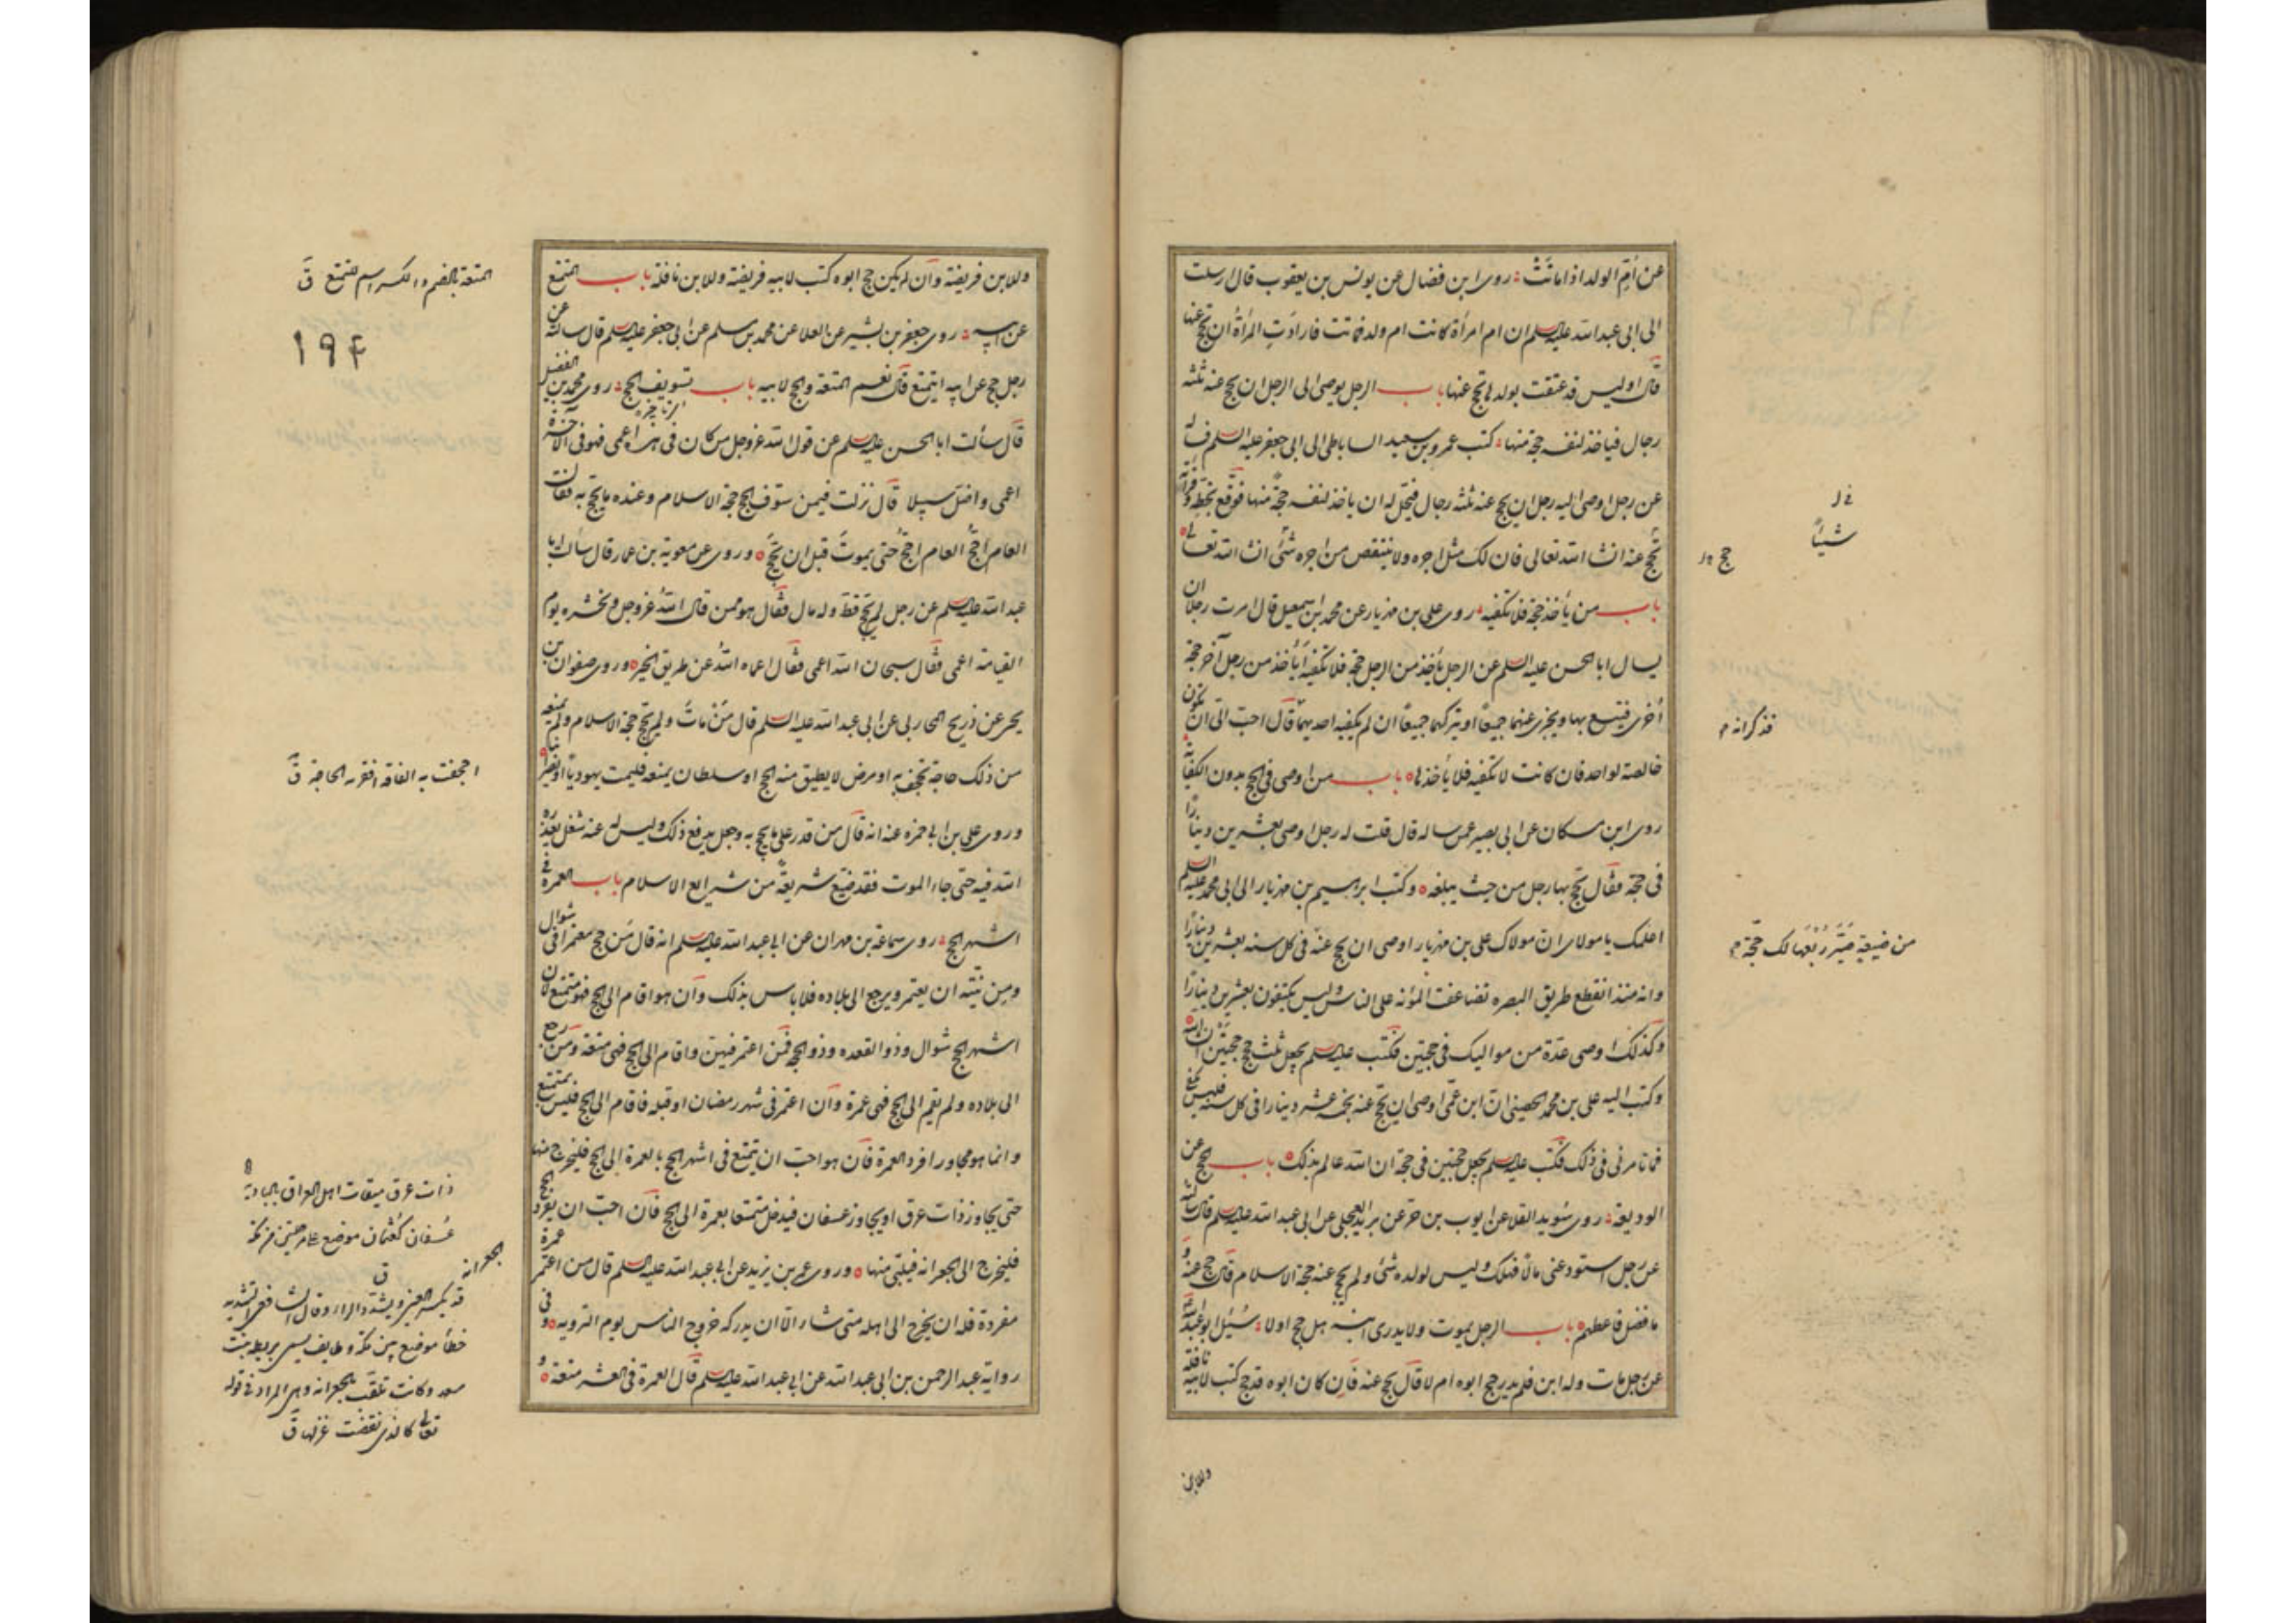 عن أمّ الولد اذا ماتت روى ابن فضال عن يونس بن يعقوب قال ارسلت
الى ابى عبد الله عليه السلم ان ام امرأة كانت ام ولد فماتت فارادت المرأة أن تحج عنها
قال اوليس قد عتقت بولدها تحج عنها باب الرجل يوصى الى الرجل ان يحج عنه ثلثه
رجال فياخذ لنفسه حجة منها كتب عمرو بن سعيد الساباطى الى ابى جعفر عليه السلم يساله
عن رجل اوصى اليه رجل ان يحج عنه ثلثه رجال فيحل له ان ياخذ لنفسه حجة منها فوقع بخطه وقرأته
تحج عنه انشا الله تعالى فان لك مثل اجره ولا ينتقص من اجره شئ انشا الله تعالى
باب من يأخذ حجة فلا تكفيه روى على بن مهزيار عن محمد بن اسمعيل قال امرت رجلا ان
يسال ابا الحسن عليه السلم عن الرجل يأخذ من الرجل حجة فلا تكفيه أيأخذ من رجل آخر حجة
أخرى فيتسع بها ويجزى عنهما جميعاً او يتركهما جميعاً ان لم يكفيه احديهما قال احبّ الىّ ان تكون
خالصة لواحد فان كانت لا تكفيه فلا يأخذها باب من اوصى فى الحج بدون الكفاية
روى ابن مسكان عن ابى بصير عمن ساله قال قلت له رجل اوصى بعشرين دينارا
فى حجة فقال تحج بها رجل من حيث يبلغه وكتب ابرهيم بن مهزيار الى ابى محمد عليه السلم
اعلمك يا مولاى انّ مولاك على بن مهزيار اوصى ان يحج عنه فى كل سنه بعشرين دينارا
وانه منذ انقطع طريق البصره تضاعفت المؤنه على الناس وليس يكتفون بعشرين دينارا
وكذلك اوصى عدّة من مواليك فى حجتين فكتب عليه السلم يجعل ثلث حجج حجتين ان شاء الله
وكتب اليه على بن محمد الحصينى انّ ابن عمّى اوصى ان يحج عنه بخمسه عشر دينارا فى كل سنه فليس يكفى
فما تامرنى فى ذلك فكتب عليه السلم يجعل حجتين فى حجة ان الله عالم بذلك باب الحج عن
الوديعة روى سُويد القلا عن ايوب بن حر عن بريد العجلى عن ابى عبد الله عليه السلم قال سالته
عن رجل استودعنى مالا فهلك وليس لولده شئ ولم يحج عنه حجة الاسلام قال حج عنه و
ما فضل فاعطهم باب الرجل يموت ولا يدرى ابنه هل حج اولا سُئِل ابو عبد الله
عن رجل مات وله ابن فلم يدر حج ابوه ام لا قال يحج عنه فان كان ابوه قد حج كتب لابيه نافلة
وللابن
فى ا
شيئاً
حج
فذكر انه
من ضيعةٍ صَيّرَ رُبْعَها لك حجّة
وللابن فريضة وان لم يكن حج ابوه كتب لابيه فريضة وللابن نافلة باب المتمتع
عن ابيه روى جعفر بن بشير عن العلا عن محمد بن مسلم عن ابى جعفر عليه السلم قال سالته عن
رجل حج عن ابيه ايتمتع قال نعم المتعة له والحج لابيه باب تسويف الحج روى محمد بن الفضل
قال سألت ابا الحسن عليه السلم عن قول الله عز وجل من كان فى هذه اعمى فهو فى الآخرة
اعمى واضل سبيلا قال نزلت فيمن سوّف الحج حجة الاسلام وعنده ما يحج به فقال
العام احج العام احج حتى يموت قبل ان يحج وروى عن معوية بن عمار قال سالت ابا
عبد الله عليه السلم عن رجل لم يحج قط وله مال فقال هو ممن قال الله عز وجل ونحشره يوم
القيامة اعمى فقال سبحان الله اعمى فقال اعماه الله عن طريق الخير وروى صفوان بن
يحيى عن ذريح المحاربى عن ابى عبد الله عليه السلم قال من مات ولم يحج حجة الاسلام ولم يمنعه
من ذلك حاجة تجحف به او مرض لا يطيق منه الحج او سلطان يمنعه فليمت يهوديا او نصرانيا
وروى على بن ابى حمزه عنه انه قال من قدر على ما يحج به وجعل يدفع ذلك وليس له عنه شغل يعذره
الله فيه حتى جاء الموت فقد ضيّع شريعة من شرايع الاسلام باب العمرة فى
اشهر الحج روى سماعة بن مهران عن ابى عبد الله عليه السلم انه قال من حج معتمرا فى شوال
ومن نيّته ان يعتمر ويرجع الى بلاده فلا باس بذلك وان هو اقام الى الحج فهو متمتع لان
اشهر الحج شوال وذو القعده وذو الحجه فمن اعتمر فيهن واقام الى الحج فهى متعة ومن رجع
الى بلاده ولم يقم الى الحج فهى عمرة وان اعتمر فى شهر رمضان او قبله فاقام الى الحج فليس بمتمتع
وانما هو مجاور افرد العمرة فان هو احبّ ان يتمتع فى اشهر الحج بالعمرة الى الحج فليخرج منها
حتى يجاوز ذات عرق او يجاوز عسفان فيدخل متمتعا بعمرة الى الحج فان احبّ ان يفرد الحج
فليخرج الى الجعرانه فيلبّى منها وروى عمر بن يزيد عن ابى عبد الله عليه السلم قال من اعتمر عمرة
مفردة فله ان يخرج الى اهله متى شاء الا ان يدركه خروج الناس يوم الترويه وفى
رواية عبد الرحمن بن ابى عبد الله عن ابى عبد الله عليه السلم قال العمرة فى العشر متعة و
المتعة بالضم والكسر اسم للتمتع ق
۱۹۴
اجحفت به الفاقة افقرته الحاجة ق
ذات عرق ميقات اهل العراق بالبادية
عُسفان كعُثمان موضع على مرحلتين من مكة
ق
الجعرانة
قد يكسر العين ويشدّد الراء وقال الشافعى التشديد
خطأ موضع بين مكة وطايف سمى بريطة بنت
سعد وكانت تلقّب بالجعرانة وهى المراد فى قوله
تعالى كالتى نقضت غزلها ق